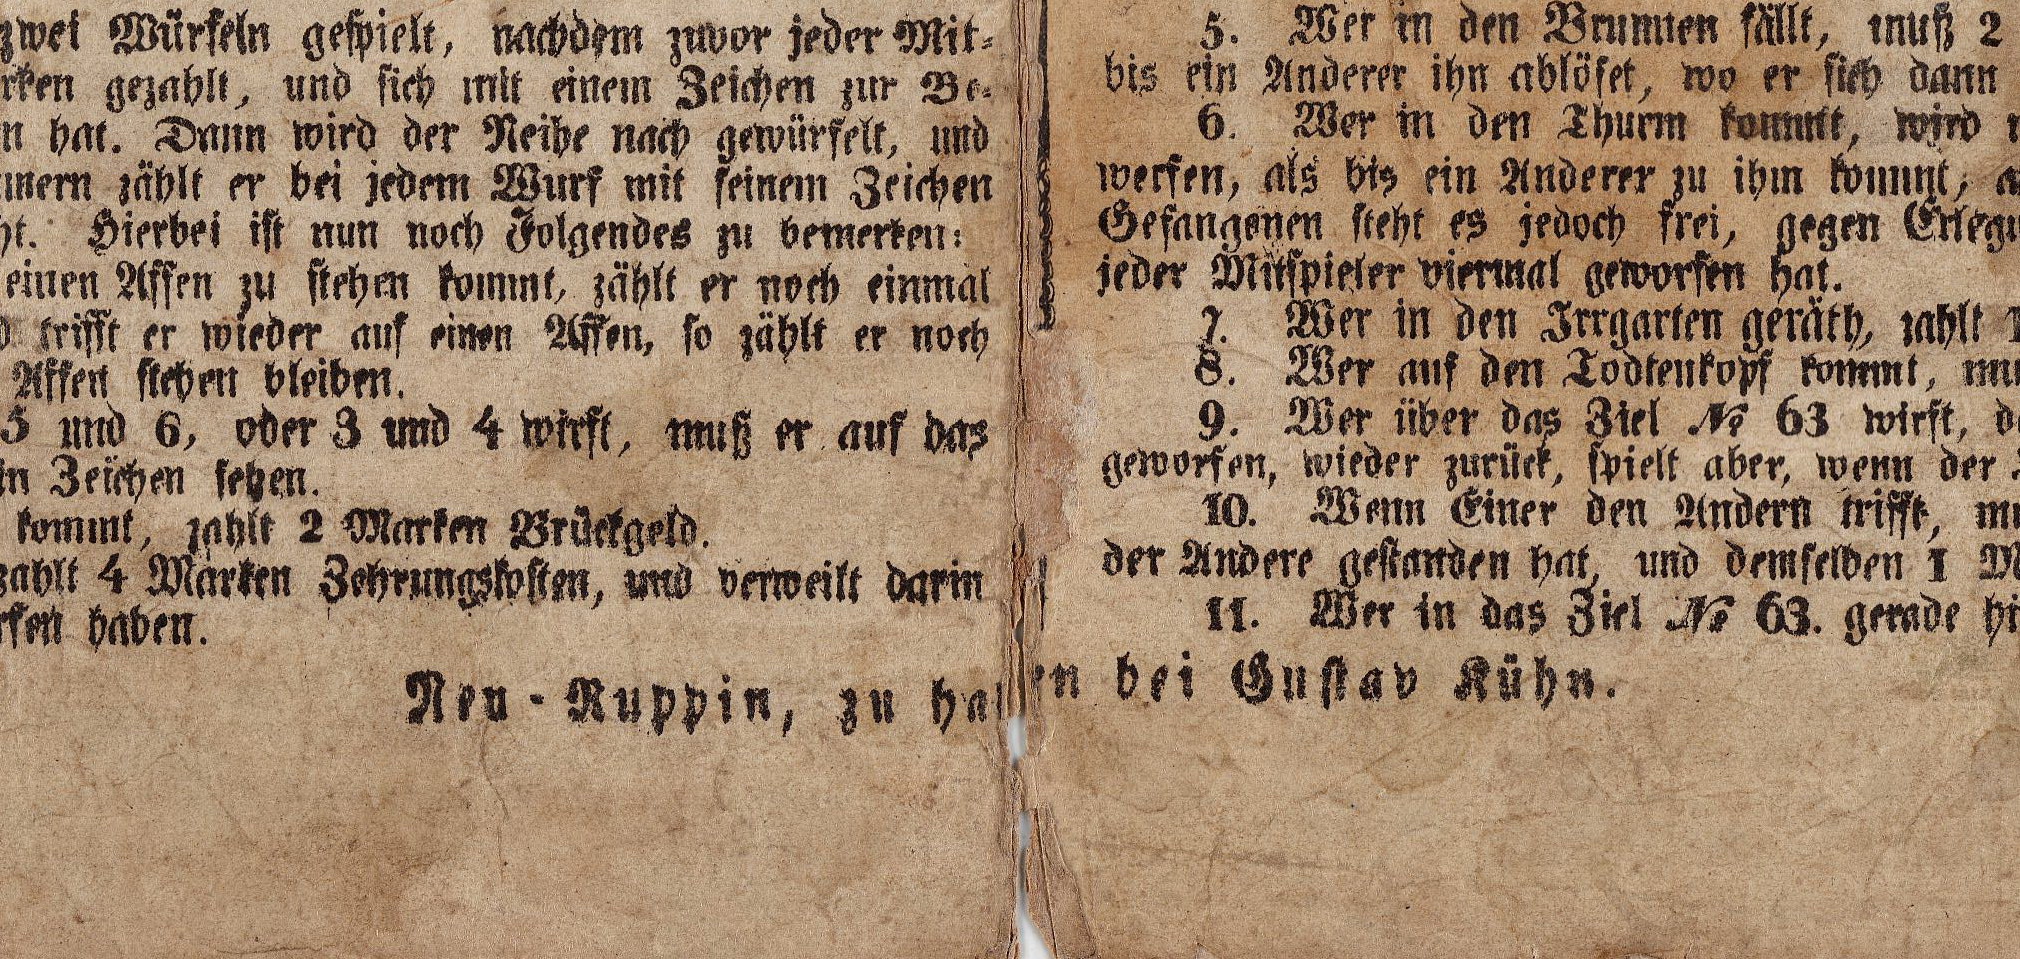 zwei Würfeln gespielt, nachdem zuvor jeder Mit-
rken gezahlt, und sich mit einem Zeichen zur Be-
n hat. Dann wird der Reihe nach gewürfelt, und
nnern zählt er bei jedem Wurf mit seinem Zeichen
ht. Hierbei ist nun noch Folgendes zu bemerken:
einen Affen zu stehen kommt, zählt er noch einmal
d trifft er wieder auf einen Affen, so zählt er noch
Affen stehen bleiben.
5 und 6, oder 3 und 4 wirft, muß er auf das
in Zeichen setzen.
kommt, zahlt 2 Marken Brückgeld.
zahlt 4 Marken Zehrungskosten, und verweilt darin
rfen haben.
5. Wer in den Brunnen fällt, muß 2
bis ein Anderer ihn ablöset, wo er sich dann
6. Wer in den Thurm kommt, wird
werfen, als bis ein Anderer zu ihm kommt,
Gefangenen steht es jedoch frei, gegen Erlegu
jeder Mitspieler viermal geworfen hat.
7. Wer in den Irrgarten geräth, zahlt
8. Wer auf den Todtenkopf kommt, mu
9. Wer über das Ziel № 63 wirft, de
geworfen, wieder zurück, spielt aber, wenn der
10. Wenn Einer den Andern trifft, mu
der Andere gestanden hat, und demselben 1 M
11. Wer in das Ziel № 63. gerade hi
Neu-Ruppin, zu haben bei Gustav Kühn.